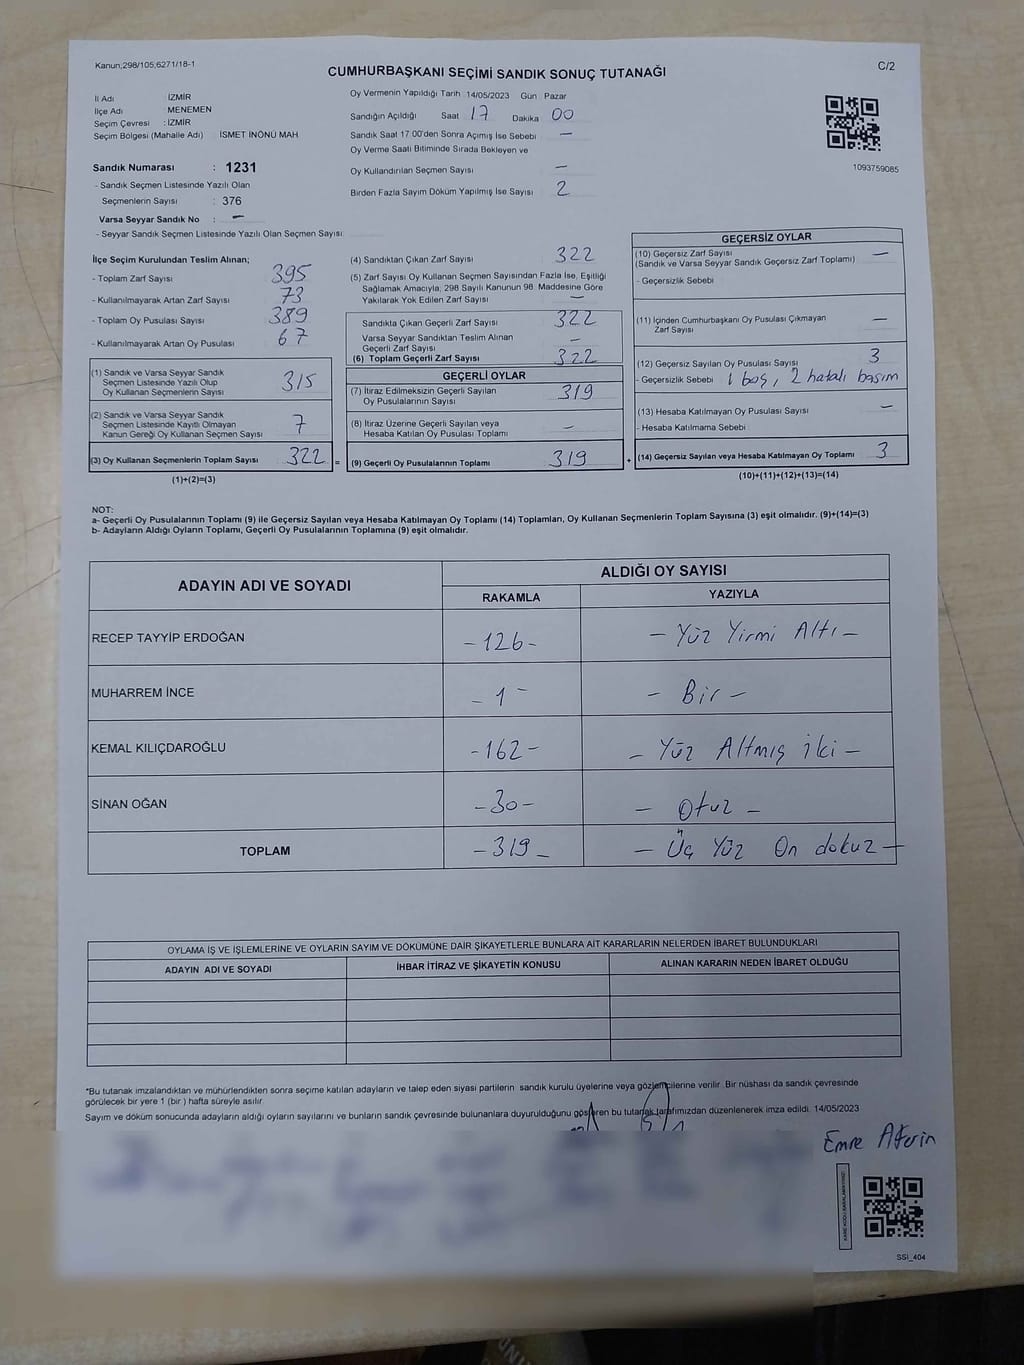 Kanun;298/105;6271/18-1
C/2
CUMHURBAŞKANI SEÇİMİ SANDIK SONUÇ TUTANAĞI
İl Adı İZMİR
İlçe Adı : MENEMEN
Seçim Çevresi : İZMİR
Seçim Bölgesi (Mahalle Adı) : İSMET İNÖNÜ MAH
Sandık Numarası : 1231
- Sandık Seçmen Listesinde Yazılı Olan
Seçmenlerin Sayısı : 376
Varsa Seyyar Sandık No : —
- Seyyar Sandık Seçmen Listesinde Yazılı Olan Seçmen Sayısı:
Oy Vermenin Yapıldığı Tarih 14/05/2023 Gün Pazar
Sandığın Açıldığı Saat 17 Dakika 00
Sandık Saat 17:00'den Sonra Açımış İse Sebebi —
Oy Verme Saati Bitiminde Sırada Bekleyen ve
Oy Kullandırılan Seçmen Sayısı —
Birden Fazla Sayım Döküm Yapılmış İse Sayısı 2
1093759085
İlçe Seçim Kurulundan Teslim Alınan;
- Toplam Zarf Sayısı 395
- Kullanılmayarak Artan Zarf Sayısı 73
- Toplam Oy Pusulası Sayısı 389
- Kullanılmayarak Artan Oy Pusulası 67
(1) Sandık ve Varsa Seyyar Sandık
Seçmen Listesinde Yazılı Olup
Oy Kullanan Seçmenlerin Sayısı 315
(2) Sandık ve Varsa Seyyar Sandık
Seçmen Listesinde Kayıtlı Olmayan
Kanun Gereği Oy Kullanan Seçmen Sayısı 7
(3) Oy Kullanan Seçmenlerin Toplam Sayısı 322 =
(1)+(2)=(3)
(4) Sandıktan Çıkan Zarf Sayısı 322
(5) Zarf Sayısı Oy Kullanan Seçmen Sayısından Fazla İse, Eşitliği
Sağlamak Amacıyla; 298 Sayılı Kanunun 98. Maddesine Göre
Yakılarak Yok Edilen Zarf Sayısı —
Sandıkta Çıkan Geçerli Zarf Sayısı 322
Varsa Seyyar Sandıktan Teslim Alınan
Geçerli Zarf Sayısı —
(6) Toplam Geçerli Zarf Sayısı 322
GEÇERLİ OYLAR
(7) İtiraz Edilmeksizin Geçerli Sayılan
Oy Pusulalarının Sayısı 319
(8) İtiraz Üzerine Geçerli Sayılan veya
Hesaba Katılan Oy Pusulası Toplamı —
(9) Geçerli Oy Pusulalarının Toplamı 319 +
GEÇERSİZ OYLAR
(10) Geçersiz Zarf Sayısı —
(Sandık ve Varsa Seyyar Sandık Geçersiz Zarf Toplamı)
- Geçersizlik Sebebi
(11) İçinden Cumhurbaşkanı Oy Pusulası Çıkmayan
Zarf Sayısı —
(12) Geçersiz Sayılan Oy Pusulası Sayısı 3
- Geçersizlik Sebebi 1 boş, 2 hatalı basım
(13) Hesaba Katılmayan Oy Pusulası Sayısı —
- Hesaba Katılmama Sebebi
(14) Geçersiz Sayılan veya Hesaba Katılmayan Oy Toplamı 3
(10)+(11)+(12)+(13)=(14)
NOT:
a- Geçerli Oy Pusulalarının Toplamı (9) ile Geçersiz Sayılan veya Hesaba Katılmayan Oy Toplamı (14) Toplamları, Oy Kullanan Seçmenlerin Toplam Sayısına (3) eşit olmalıdır. (9)+(14)=(3)
b- Adayların Aldığı Oyların Toplamı, Geçerli Oy Pusulalarının Toplamına (9) eşit olmalıdır.
ADAYIN ADI VE SOYADI ALDIĞI OY SAYISI
RAKAMLA YAZIYLA
RECEP TAYYİP ERDOĞAN -126- - Yüz Yirmi Altı -
MUHARREM İNCE - 1 - - Bir -
KEMAL KILIÇDAROĞLU -162- - Yüz Altmış iki -
SİNAN OĞAN -30- - Otuz -
TOPLAM -319- - Üç Yüz On dokuz -
OYLAMA İŞ VE İŞLEMLERİNE VE OYLARIN SAYIM VE DÖKÜMÜNE DAİR ŞİKAYETLERLE BUNLARA AİT KARARLARIN NELERDEN İBARET BULUNDUKLARI
ADAYIN ADI VE SOYADI İHBAR İTİRAZ VE ŞİKAYETİN KONUSU ALINAN KARARIN NEDEN İBARET OLDUĞU
*Bu tutanak imzalandıktan ve mühürlendikten sonra seçime katılan adayların ve talep eden siyasi partilerin sandık kurulu üyelerine veya gözlemcilerine verilir. Bir nüshası da sandık çevresinde
görülecek bir yere 1 (bir ) hafta süreyle asılır.
Sayım ve döküm sonucunda adayların aldığı oyların sayılarını ve bunların sandık çevresinde bulunanlara duyurulduğunu gösteren bu tutanak tarafımızdan düzenlenerek imza edildi. 14/05/2023
Emre
SSİ_404